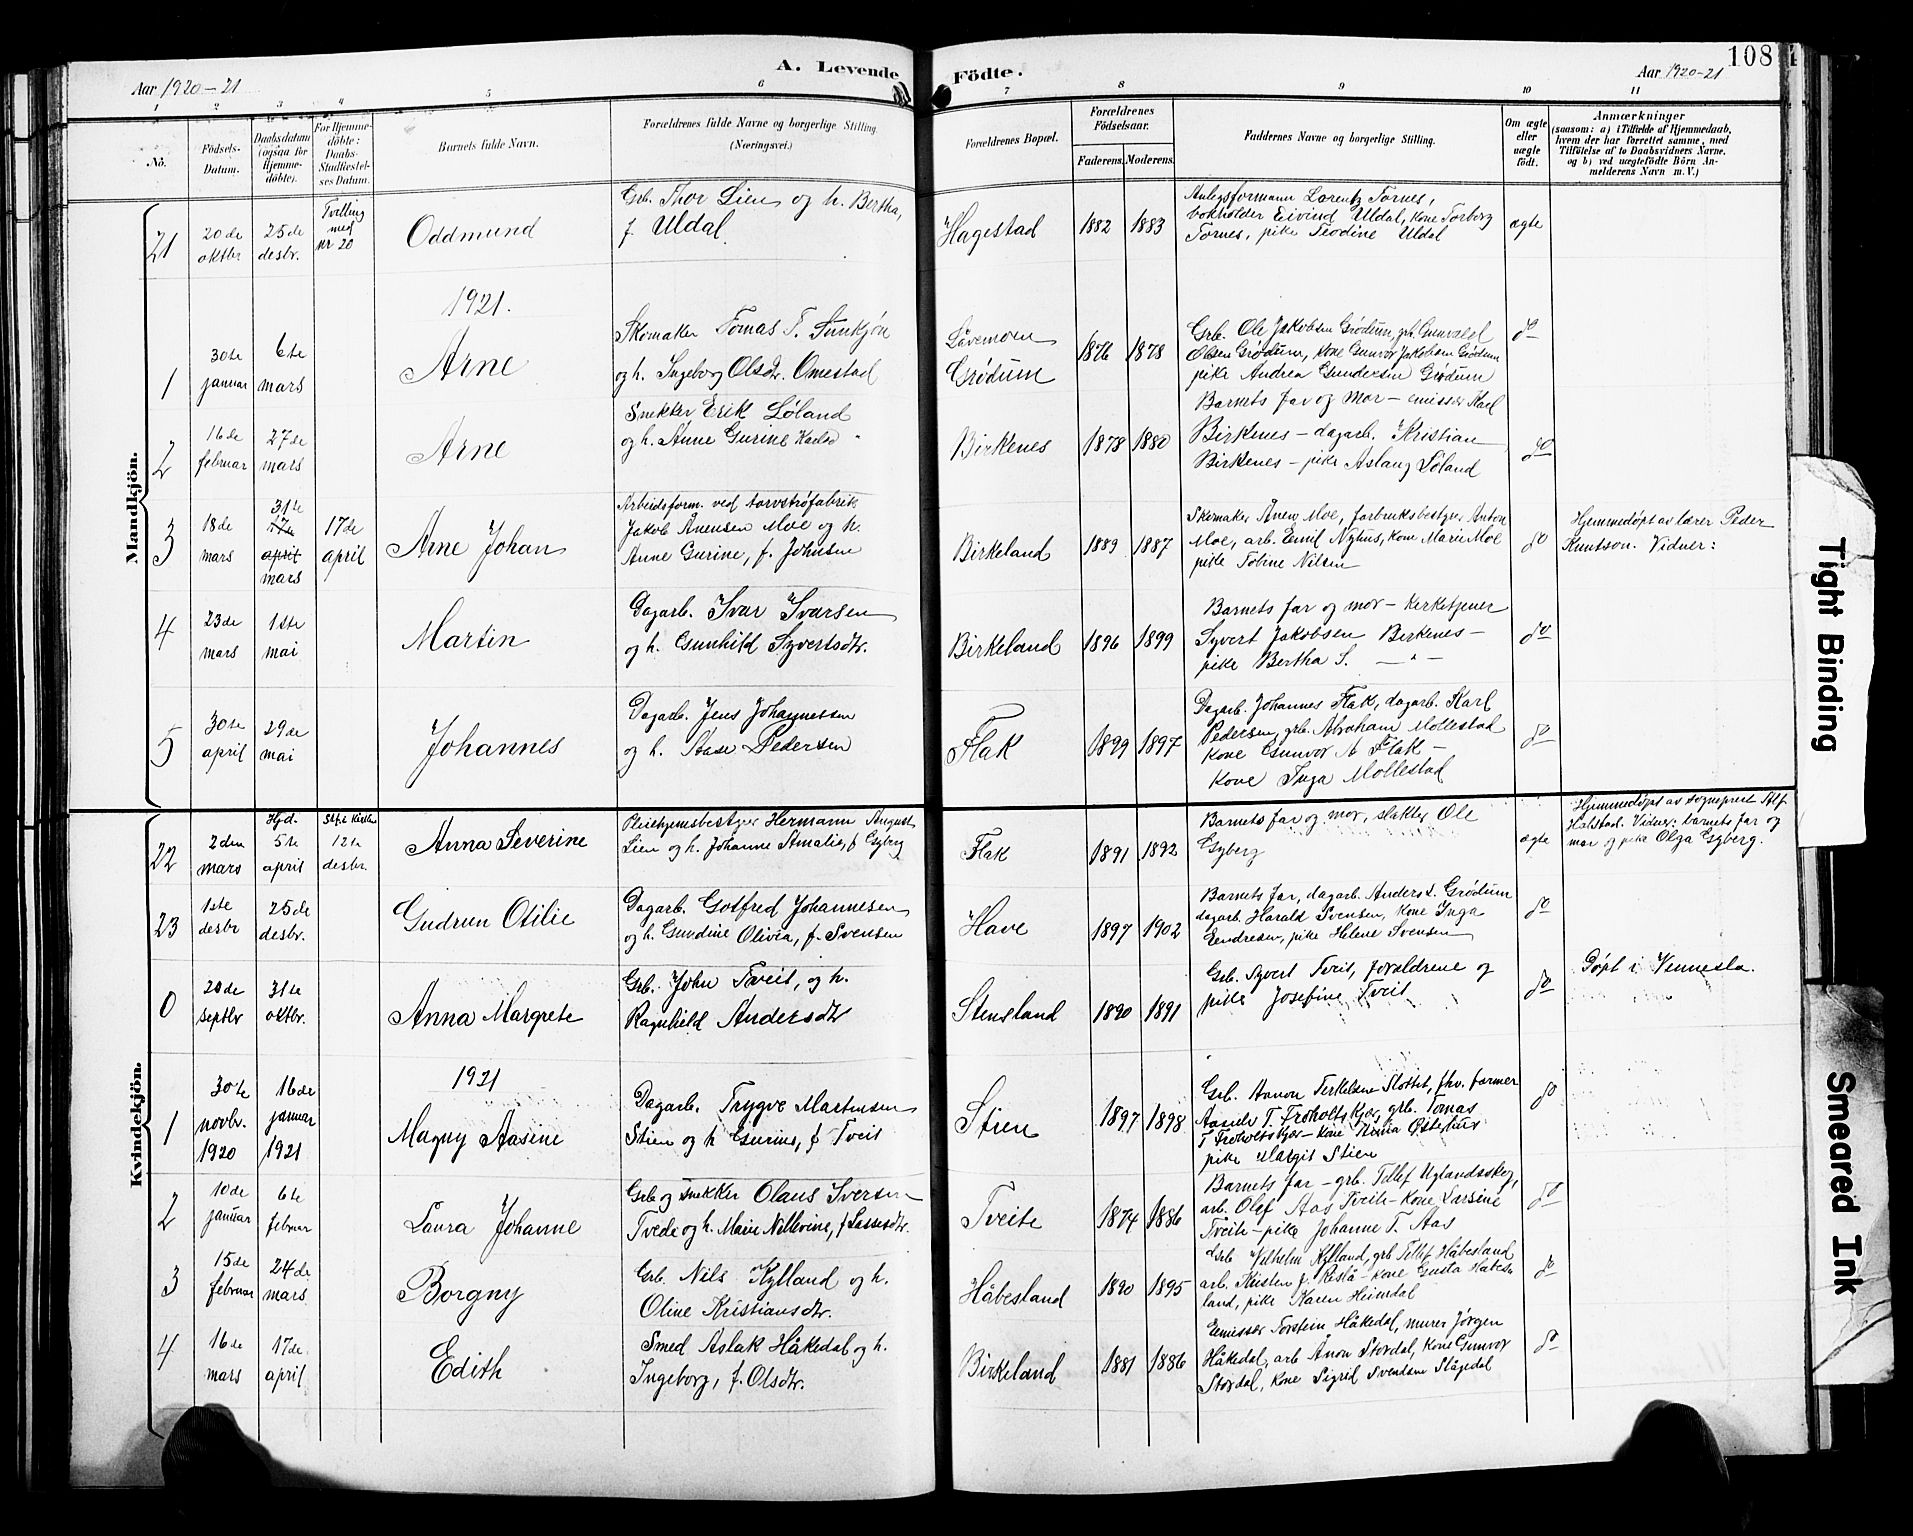 Aar 1920-21
A. Levende
Födte.
Aar 1920-21
108
1 2 3 4 5 6 7 8 9 10 11
No.
Födsels-
Datum.
Daabsdatum
(ogsaa for
Hjemme-
döbte).
For Hjemme-
döbte:
Daabs-
Stadfæstel-
ses Datum.
Barnets fulde Navn.
Forældrenes fulde Navne og borgerlige Stilling.
(Næringsvei.)
Forældrenes Bopæl.
Forældrenes
Födselsaar.
Faderens. Moderens.
Faddernes Navne og borgerlige Stilling.
Om ægte
eller
uægte
födt.
Anmærkninger
(saasom: a) i Tilfælde af Hjemmedaab,
hvem der har forrettet samme, med
Tilföielse af to Daabsvidners Navne,
og b) ved uægtefödte Börn An-
melderens Navn m. V.)
Mandkjön.
21
20de
oktbr
25de
desbr.
Tvilling
med
nr 20
Oddmund
Grb. Thor Lien og h. Bertha,
f. Uldal
Hagestad
1882 1883
Anlegsformann Lorentz Tornes,
bokholder Eivind Uldal, kone Torborg
Tornes, pike Teodine Uldal
ægte
1921.
1
30te
januar
6te
mars
Arne
Skomaker Tomas T.
og h. Ingeborg Olsdtr. Omestad
Løvemoen
Grødum
1876 1878
Grb. Ole Jakobsen Grødum, grb. Gunvald
Olsen Grødum, kone Gunvor Jakobsen Grødum
pike Andrea Gundersen Grødum
do
2
16de
februar
27de
mars
Arne
Snekker Erik Løland
og h. Anne Gurine Karlsd
Birkenes
1878 1880
Barnets far og mor - emissær Karl
Birkenes - dagarb. Kristian
Birkenes - pike Aslaug Løland
do
3
18de
mars
31te
17de
april
mars
17de
april
Arne Johan
Arbeidsform. ved torvstrøfabrik
Jakob Ånensen Moe og h.
Anne Gurine, f. Johnsen
Birkeland
1889 1887
Skomaker Ånen Moe, farbruksbestyrer Anton
Moe, arb. Emil Nyhus, kone Marie Moe
pike Tobine Nilsen
do
Hjemmedøpt av lærer Peder
Knutson. Vidner:
4
23de
mars
1ste
mai
Martin
Dagarb. Ivar Ivarsen
og h. Gunhild Syvertsdtr.
Birkeland
1896 1899
Barnets far og mor - kirketjener
Syvert Jakobsen Birkenes -
pike Bertha S. - " -
do
5
30te
april
29de
mai
Johannes
Dagarb. Jens Johannessen
og h. Stase Pedersen
Flak
1899 1897
Dagarb. Johannes Flak, dagarb. Karl
Pedersen, grb. Abraham Mollestad
kone Gunvor A Flak -
kone Inga Mollestad
do
Kvindekjön.
22
2den
mars
Hjd.
5te
april
Stf. i Kirken
12te
desbr.
Anna Severine
Pleiehjemsbestyrer Hermann August
Lien og h. Johanne Amalie, f Gyberg
Flak
1891 1892
Barnets far og mor, slakter Ole
Gyberg
ægte
Hjemmedøpt av sogneprest Alf
Halstad. Vidner: barnets far og
mor og pike Olga Gyberg.
23
1ste
desbr
25de
desbr.
Gudrun Otilie
Dagarb. Gotfred Johannesen
og h. Gundine Olivia, f. Svensen
Have
1897 1902
Barnets far, dagarb. Anders L. Grødum
dagarb. Harald Svensen, kone Inga
Eendresen, pike Helene Svensen
do
0
20de
septbr
31te
oktbr.
Anna Margrete
Grb. John Tveit, og h.
Ragnhild Andersdtr
Stensland
1890 1891
Grb. Syvert Tveit, foreldrene og
pike Josefine Tveit
do
Døpt i Vennesla.
1921
1
30te
novbr.
1920
16de
januar
1921
Magny Aasine
Dagarb. Trygve Martensen
Stien og h Gurine, f Tveit
Stien
1897 1898
Grb. Aanon Terkelsen Slottet, fhv. farmer
T. Froholtskjær, grb. Tomas
T Froholtskjær - kone
pike Margit Stien
do
2
10de
januar
6te
februar
Laura Johanne
Grb og snekker Olaus Iversen
Tvede og h. Marie Nillevine, f Lassesdtr.
Tveite
1874 1886
Barnets far - grb. Tellef Uglandsskog,
arb. Olef Aas Tveite - kone Larsine
Tveite - pike Johanne T. Aas
do
3
15de
februar
24de
mars
Borgny
Grb. Nils Kylland og h.
Oline Kristiansdtr.
Håbesland
1890 1895
Grb Vilhelm Kylland, grb Tellef Håbesland
arb. Kristen J. Reslå - kone Gusta Håbes-
land, pike Karen Heimdal
do
4
16de
mars
17de
april
Edith
Smed Aslak Håkedal og h.
Ingeborg, f. Olsdtr.
Birkeland
1881 1886
Emissær Torstein Håkedal, murer Jørgen
Håkedal, arb Ånon Stordal, kone Gunvor
Stordal, kone Sigrid Svendsen Slågedal
do
Tight Binding
Smeared Ink